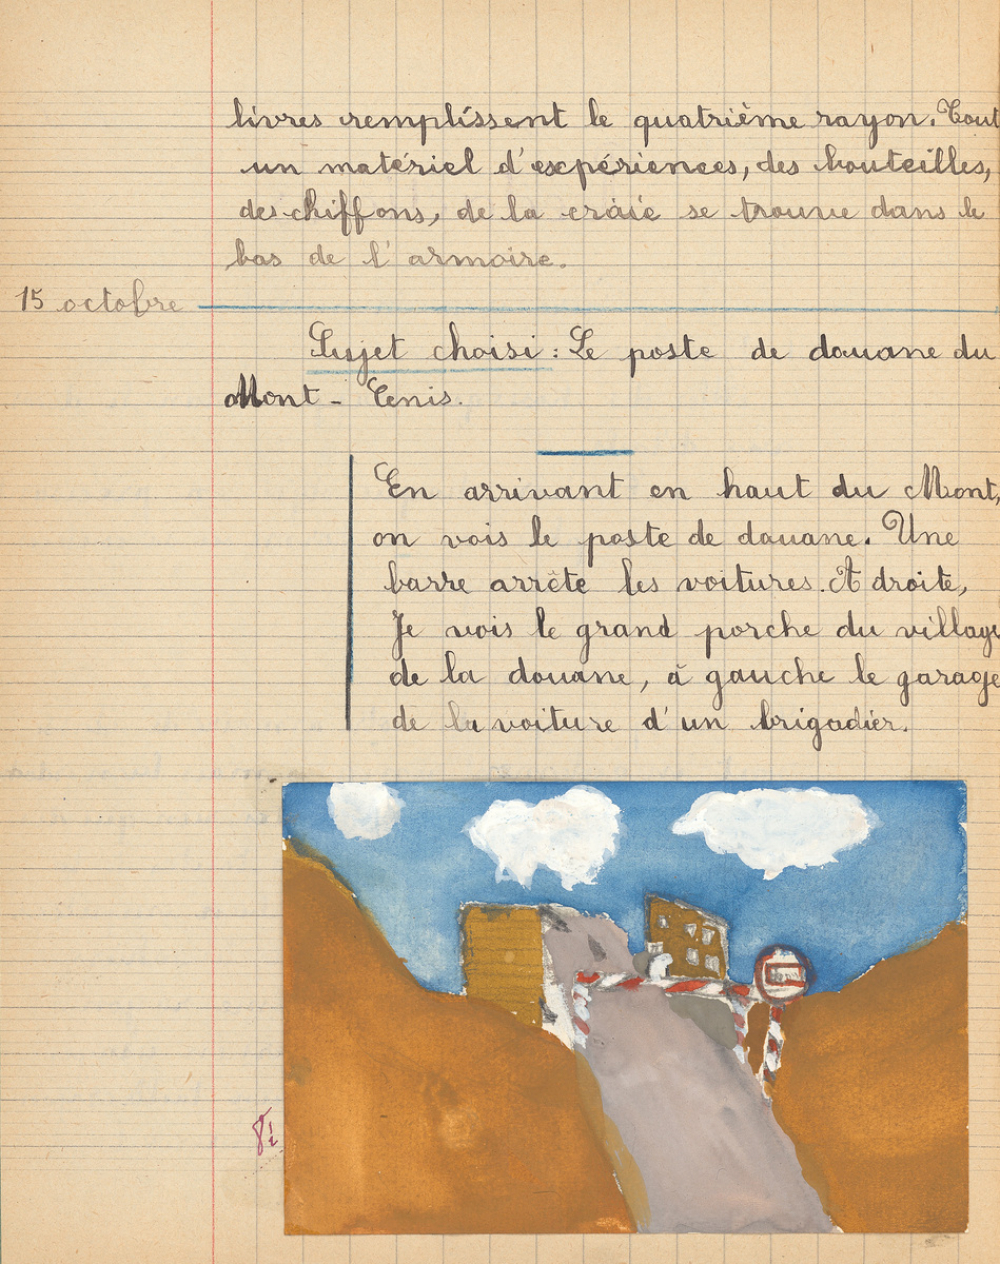 livres remplissent le quatrième rayon. Tout
un matériel d'expériences, des bouteilles,
des chiffons, de la craie se trouve dans le
bas de l'armoire.
15 octobre
Sujet choisi : Le poste de douane du
Mont - Cenis.
En arrivant en haut du Mont,
on vois le poste de douane. Une
barre arrête les voitures. A droite,
Je vois le grand porche du village
de la douane, à gauche le garage
de la voiture d'un brigadier.